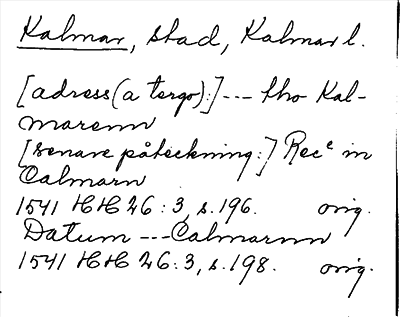 Kalmar, stad, Kalmar l.
[adress (a tergo):] --- tho Kal-
marenn
[senare påteckning:] Recᵉ in
Calmarn
1541 HH 26:3, s. 196. orig.
Datum --- Calmarnn
1541 HH 26:3, s. 198. orig.